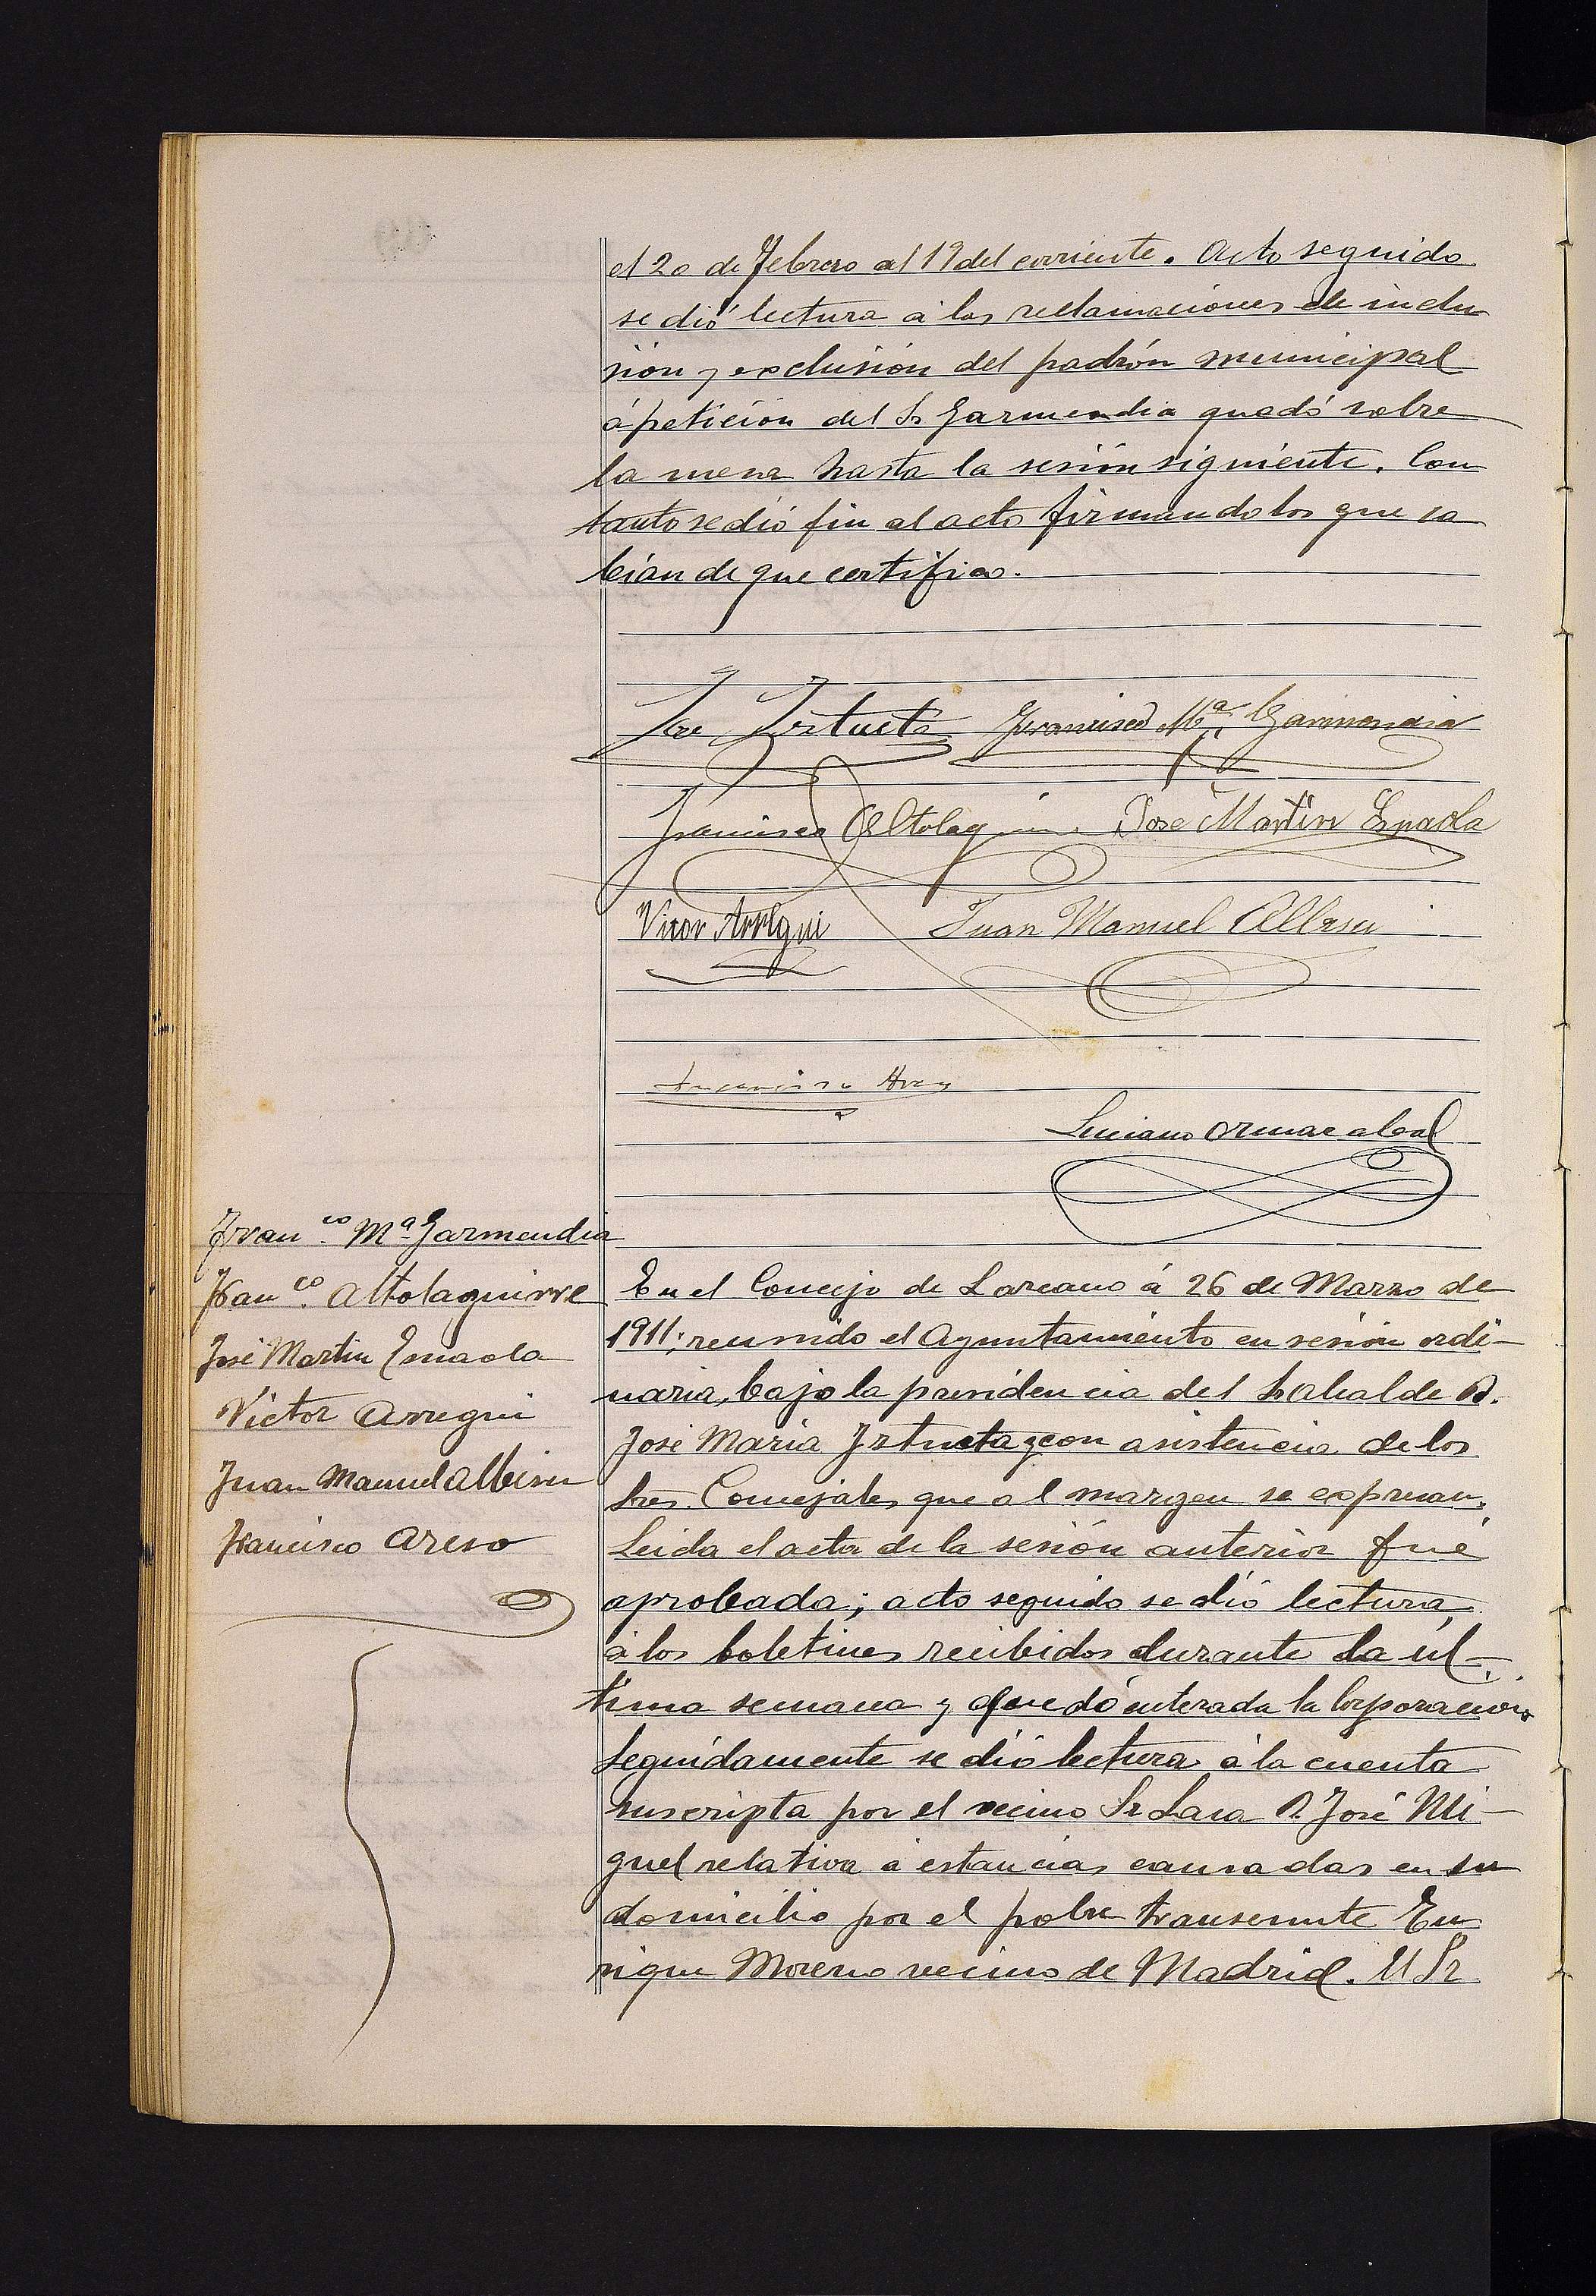 el 20 de Febrero al 19 del corriente. Acto seguido
se dió lectura á las reclamaciones de inclu
sión y exclusión del padrón municipal
á petición del Sr Garmendia quedó sobre
la mesa hasta la sesión siguiente. Con
tanto se dió fin al acto firmando los que sa
bían de que certifico.
José Irstueta Francisco Mª Garmendia
Francisco Altolaguirre José Martin Esnaola
Victor Arregui Juan Manuel Albisu
Francisco
Luciano Ormazabal
Franco. Mª Garmendia
Franco. Altolaguirre
José Martin Esnaola
Victor Arregui
Juan Manuel Albisu
Francisco Areso
En el Concejo de Lazcano á 26 de Marzo de
1911; reunido el Ayuntamiento en sesión ordi-
naria, bajo la presidencia del Sr Alcalde D.
José Maria Irstueta y con asistencia de los
Sres. Concejales que al margen se expresan.
Leida el acta de la sesión anterior fué
aprobada; acto seguido se dió lectura
á los boletines recibidos durante la úl-
tima semana y quedó enterada la Corporación
Seguidamente se dió lectura á la cuenta
suscripta por el vecino Sr Lasa D José Mi-
guel relativa á estancias causadas en su
domicilio por el pobre transeunte En
rique Moreno vecino de Madrid. El Sr